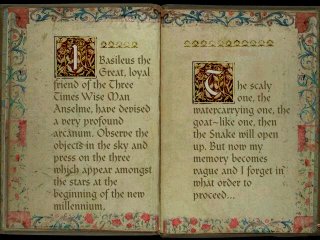 I Basileus the
Great, loyal
friend of the Three
Times Wise Man
Anselme, have devised
a very profound
arcanum. Observe the
objects in the sky and
press on the three
which appear amongst
the stars at the
beginning of the new
millennium.
The scaly
one, the
watercarrying one, the
goat-like one, then
the Snake will open
up. But now my
memory becomes
vague and I forget in
what order to
proceed...